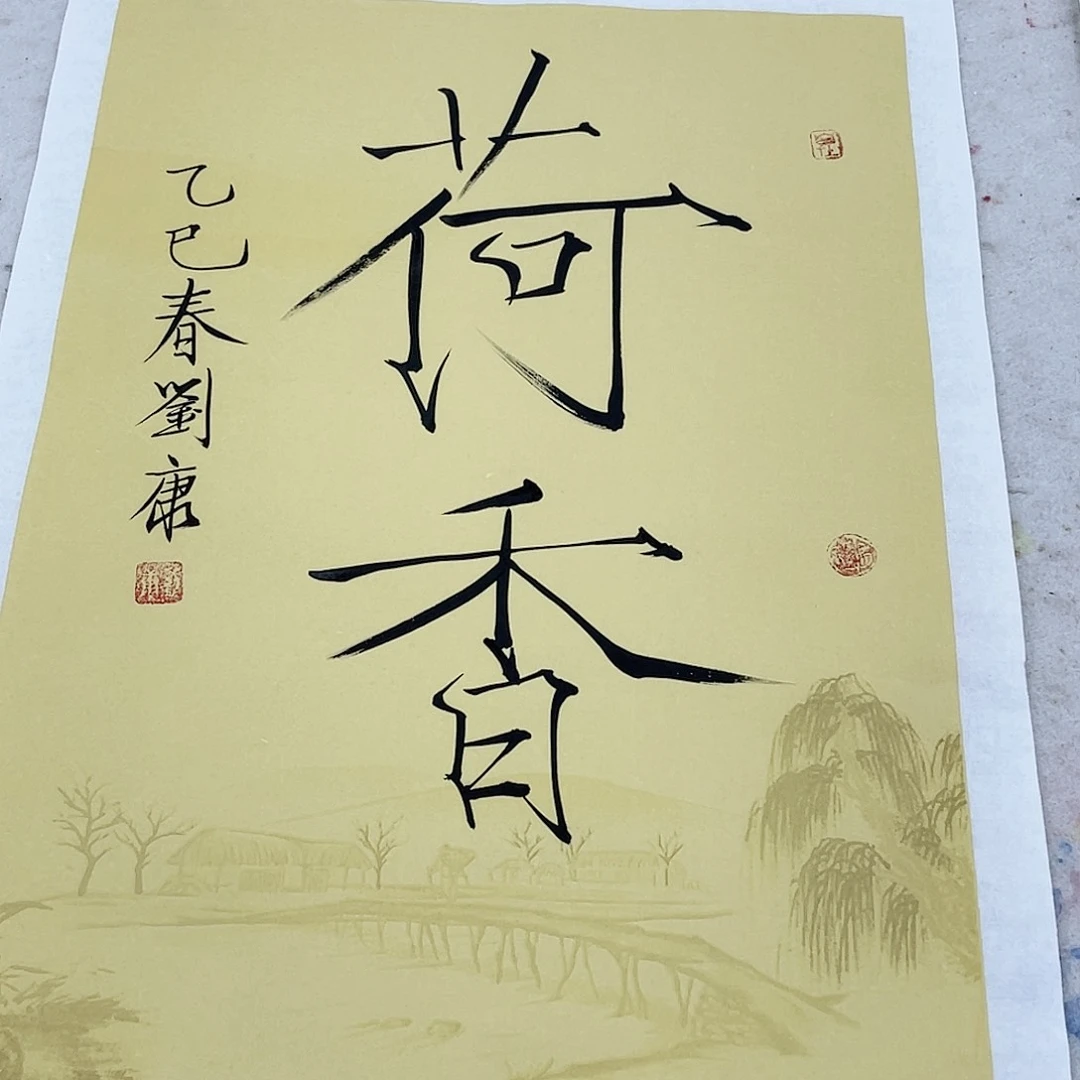 荷香
乙巳春劉康